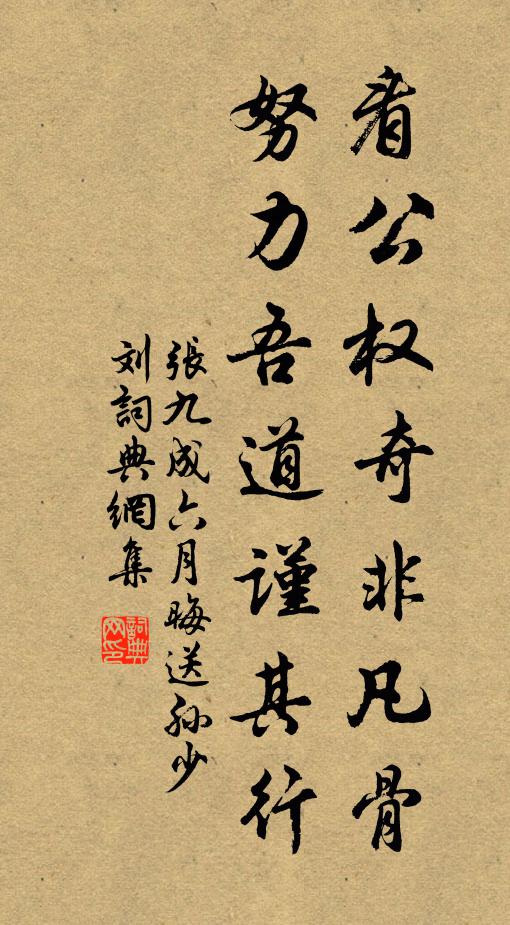 看公权奇非凡骨
努力吾道谨其行
張九成六月晦送孙少
刘詞典網集
詞典网印